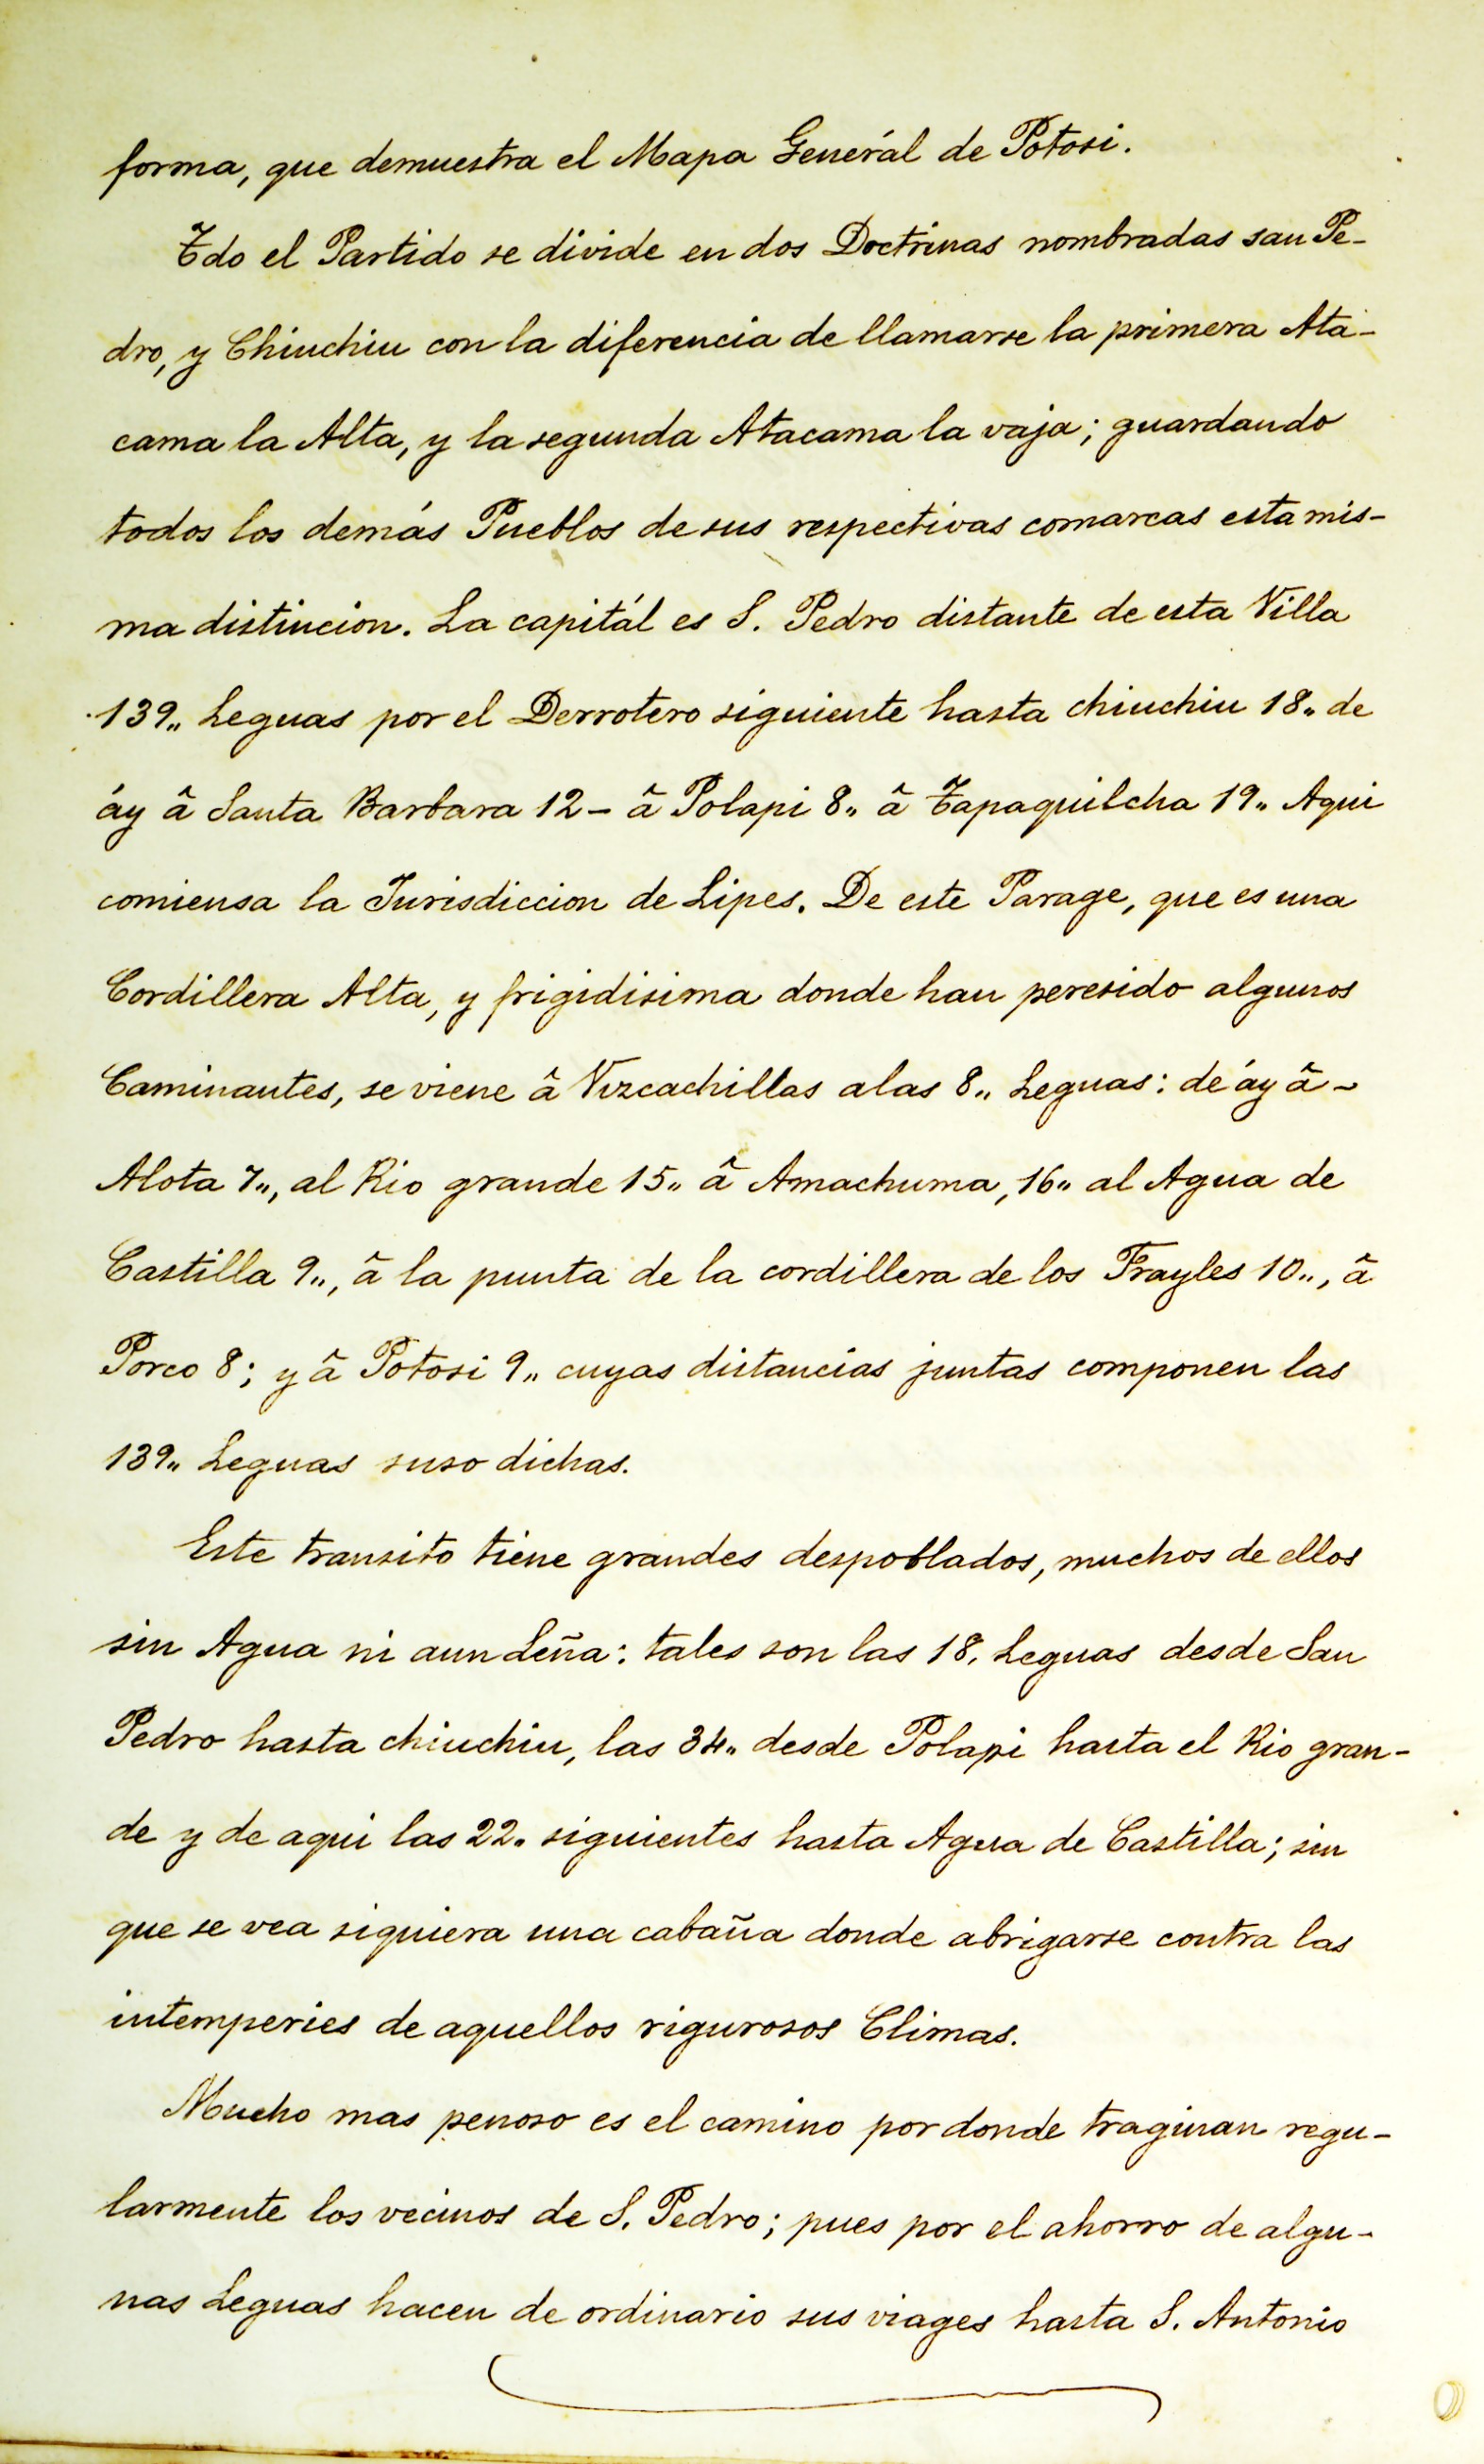 forma, que demuestra el Mapa Generál de Potosi.
Todo el Partido se divide en dos Doctrinas nombradas san Pe-
dro, y Chiuchiu con la diferencia de llamarse la primera Ata-
cama la Alta, y la segunda Atacama la vaja; guardando
todos los demás Pueblos de sus respectivas comarcas esta mis-
ma distincion. La capitál es S. Pedro distante de esta Villa
139,, Leguas por el Derrotero siguiente hasta chiuchiu 18,, de
áy â Santa Barbara 12 - â Polapi 8,, â Tapaquilcha 19,, Aqui
comiensa la Jurisdiccion de Lipes. De este Parage, que es una
Cordillera Alta, y frigidisima donde han peresido algunos
Caminantes, se viene â Vizcachillas alas 8,, Leguas: de áy â -
Alota 7,,, al Rio grande 15,, â Amachuma, 16,, al Agua de
Castilla 9,,, â la punta de la cordillera de los Frayles 10,,, â
Porco 8; y â Potosi 9,, cuyas distancias juntas componen las
139,, Leguas suso dichas.
Este transito tiene grandes despoblados, muchos de ellos
sin Agua ni aun Leña: tales son las 18, Leguas desde San
Pedro hasta chiuchiu, las 34,, desde Polapi hasta el Rio gran-
de y de aqui las 22,, siguientes hasta Agua de Castilla; sin
que se vea siquiera una cabaña donde abrigarse contra las
intemperies de aquellos rigurosos Climas.
Mucho mas penoso es el camino por donde traginan regu-
larmente los vecinos de S. Pedro; pues por el ahorro de algu-
nas Leguas hacen de ordinario sus viages hasta S. Antonio